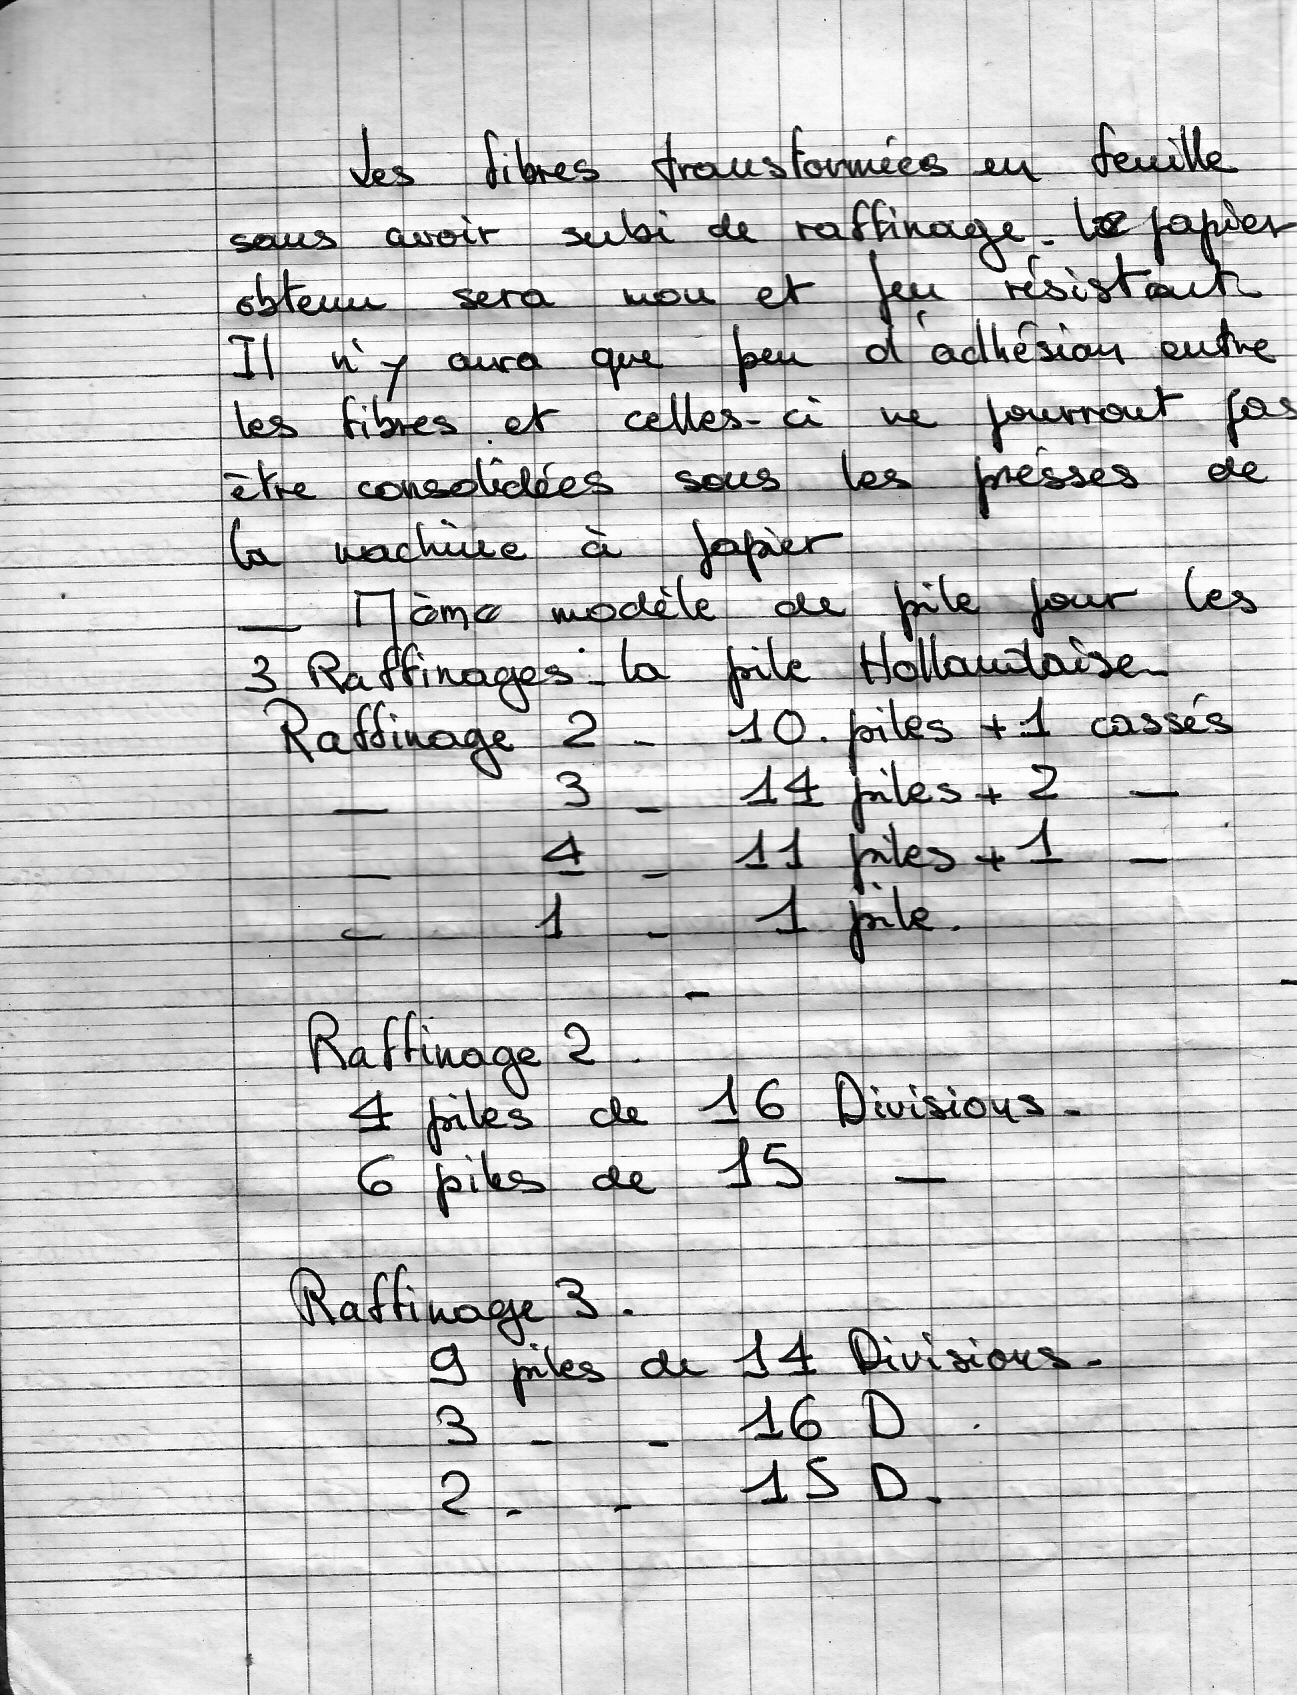 Les fibres transformées en feuille
sans avoir subi de raffinage. le papier
obtenu sera mou et peu résistant
Il n'y aura que peu d'adhésion entre
les fibres et celles-ci ne pourront pas
être consolidées sous les présses de
la machine à papier
— Même modèle de pile pour les
3 Raffinages. la pile Hollandaise
Raffinage 2 - 10. piles + 1 cassés
— 3 - 14 piles + 2 —
— 4 - 11 piles + 1 —
— 1 - 1 pile.
-
Raffinage 2.
4 piles de 16 Divisions.
6 piles de 15 —
Raffinage 3.
9 piles de 14 Divisions.
3 - - 16 D
2 - - 15 D.